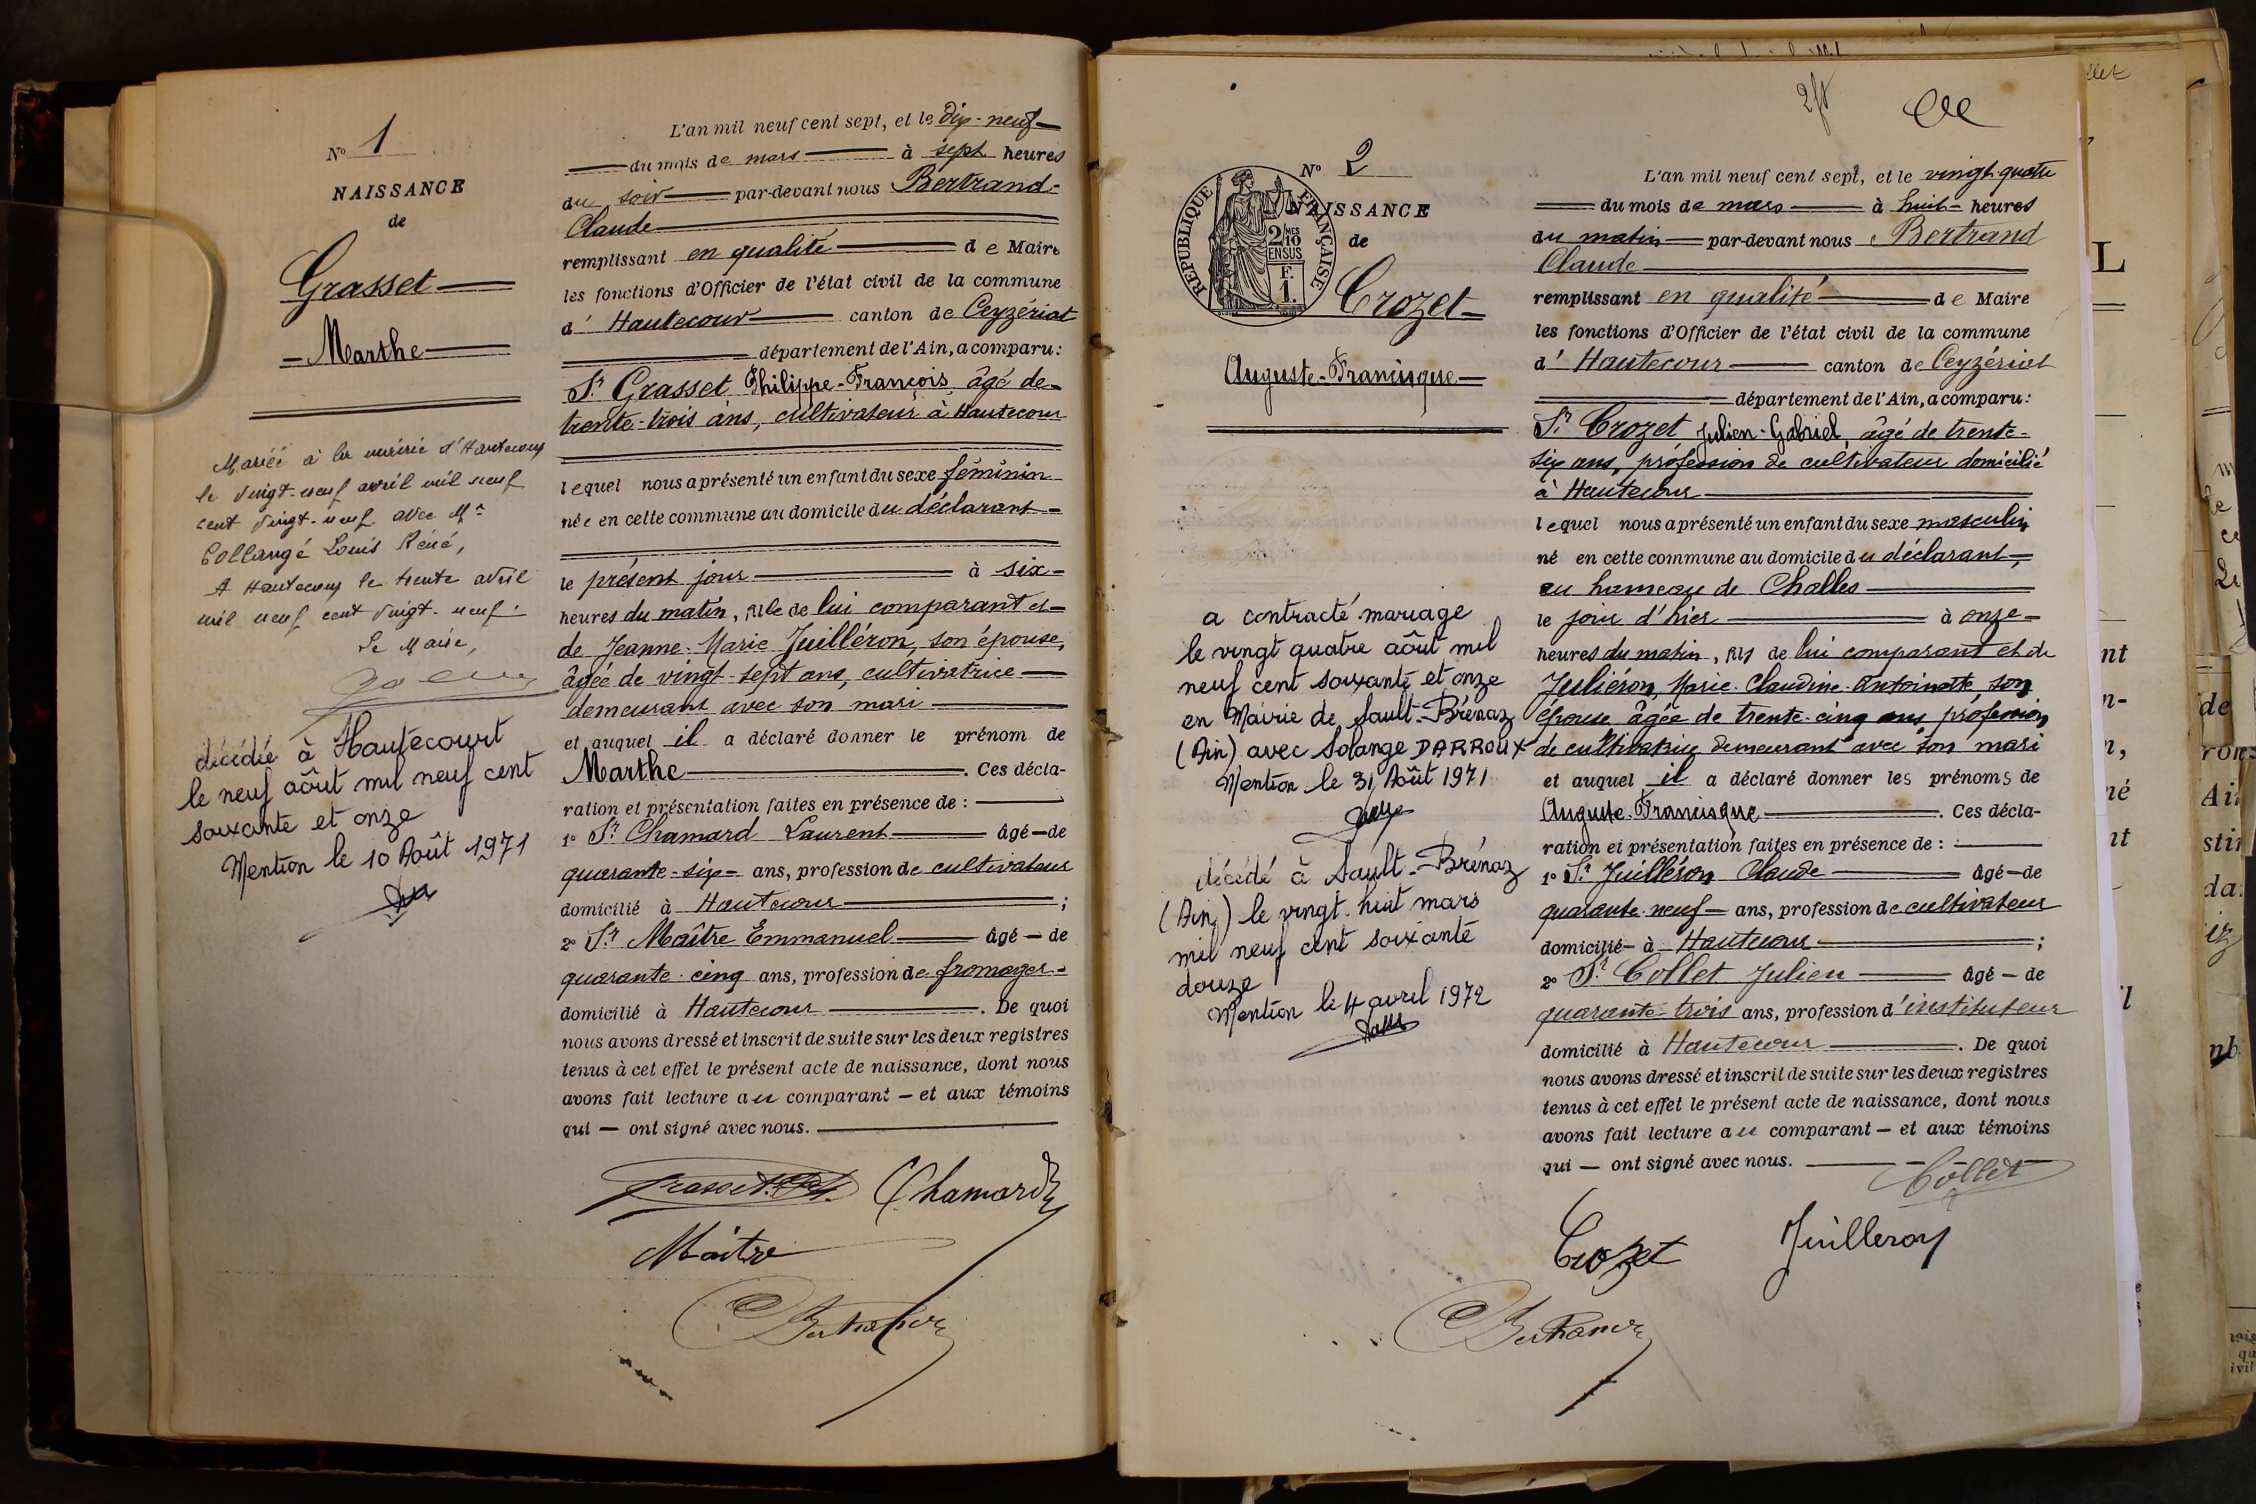 N° 1
NAISSANCE
de
Grasset
Marthe
Mariée à la mairie d'Hautecour
le vingt-neuf avril mil neuf
cent vingt-neuf avec Mr
Collangé Louis René,
A Hautecour le trente avril
mil neuf cent vingt-neuf.
Le Maire,
décédée à Hautecourt
le neuf août mil neuf cent
soixante et onze
Mention le 10 Août 1971
L'an mil neuf cent sept, et le dix-neuf
du mois de mars à sept heures
du soir par-devant nous Bertrand
Claude
remplissant en qualité de Maire
les fonctions d'Officier de l'état civil de la commune
d' Hautecour canton de Ceyzériat
département de l'Ain, a comparu:
Sr Grasset Philippe-François âgé de
trente-trois ans, cultivateur à Hautecour
lequel nous a présenté un enfant du sexe féminin
née en cette commune au domicile du déclarant
le présent jour à six
heures du matin, fille de lui comparant et
de Jeanne-Marie Juilléron, son épouse,
âgée de vingt-sept ans, cultivatrice
demeurant avec son mari
et auquel il a déclaré donner le prénom de
Marthe. Ces décla-
ration et présentation faites en présence de :
1° Sr Chamard Laurent âgé de
quarante-six ans, profession de cultivateur
domicilié à Hautecour ;
2° Sr Maître Emmanuel âgé de
quarante-cinq ans, profession de fromager
domicilié à Hautecour. De quoi
nous avons dressé et inscrit de suite sur les deux registres
tenus à cet effet le présent acte de naissance, dont nous
avons fait lecture au comparant et aux témoins
qui ont signé avec nous.
Grasset Chamard
Maître
Bertrand
N° 2
REPUBLIQUE FRANÇAISE
2/10 MES
EN SUS
F.
1.
NAISSANCE
de
Crozet
Auguste-Francisque
a contracté mariage
le vingt quatre août mil
neuf cent soixante et onze
en Mairie de Sault-Brénaz
(Ain) avec Solange DARROUX
Mention le 31 Août 1971
décédé à Sault-Brénaz
(Ain) le vingt-huit mars
mil neuf cent soixante
douze
Mention le 4 avril 1972
L'an mil neuf cent sept, et le vingt-quatre
du mois de mars à huit heures
du matin par-devant nous Bertrand
Claude
remplissant en qualité de Maire
les fonctions d'Officier de l'état civil de la commune
d' Hautecour canton de Ceyzériat
département de l'Ain, a comparu:
Sr Crozet Julien-Gabriel, âgé de trente-
six ans, profession de cultivateur domicilié
à Hautecour
lequel nous a présenté un enfant du sexe masculin
né en cette commune au domicile du déclarant,
au hameau de Challes
le jour d'hier à onze
heures du matin, fils de lui comparant et de
Juliéron, Marie-Claudine-Antoinette, son
épouse âgée de trente-cinq ans profession
de cultivatrice demeurant avec son mari
et auquel il a déclaré donner les prénoms de
Auguste-Francisque. Ces décla-
ration et présentation faites en présence de :
1° Sr Juilléron Claude âgé de
quarante-neuf ans, profession de cultivateur
domicilié à Hautecour ;
2° Sr Collet Julien âgé de
quarante-trois ans, profession d'instituteur
domicilié à Hautecour. De quoi
nous avons dressé et inscrit de suite sur les deux registres
tenus à cet effet le présent acte de naissance, dont nous
avons fait lecture au comparant et aux témoins
qui ont signé avec nous.
Collet
Crozet Juilleron
Bertrand